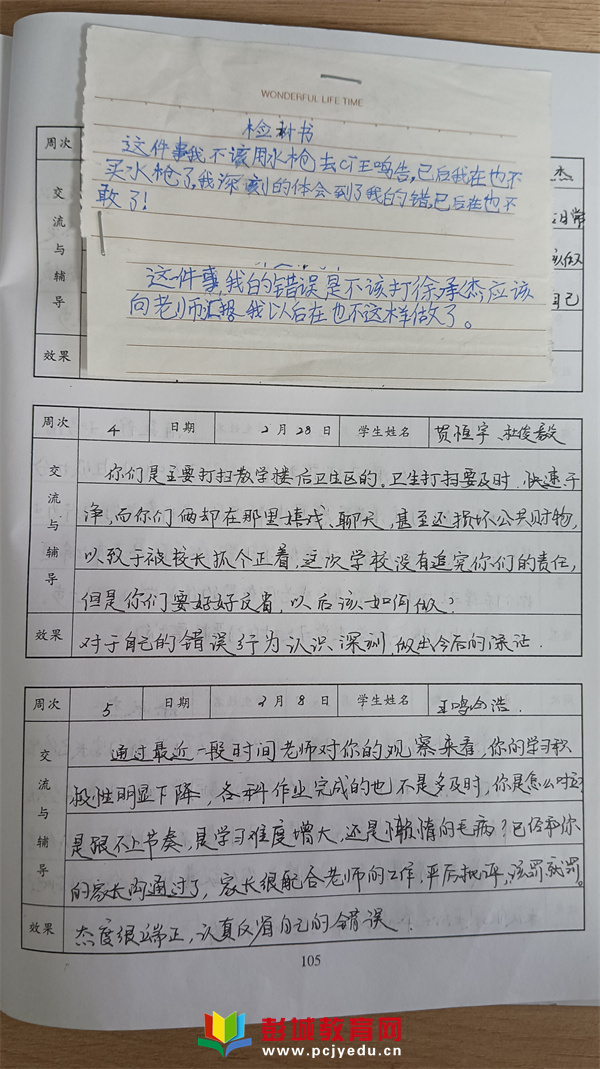 WONDERFUL LIFE TIME
检科书
这件事我不该用水枪去ci王鸣告,已后我在也不
买水枪了,我深刻的体会到了我的错,已后在也不
敢了!
这件事我的错误是不该打徐承杰应该
向老师汇报 我以后在也不这样做了。
周次
杰
交流与辅导
日常
以做
自己
效果
周次 4 日期 2月28日 学生姓名 贺恒宇、杜俊毅
交流与辅导
你们是主要打扫教学楼后卫生区的。卫生打扫要及时、快速干
净,而你们俩却在那里嬉戏、聊天,甚至还损坏公共财物,
以致于被校长抓个正着,这次学校没有追究你们的责任,
但是你们要好好反省,以后该如何做?
效果 对于自己的错误行为认识深刻,做出今后的保证.
周次 5 日期 3月8日 学生姓名 王鸣浩.
交流与辅导
通过最近一段时间老师对你的观察来看,你的学习积
极性明显下降,各科作业完成的也不是多及时,你是怎么
是跟不上节奏,是学习难度增大,还是懒惰的毛病?已经和你
的家长沟通过了,家长很配合老师的工作,严厉批评,该罚就罚。
效果 态度很端正,认真反省自己的错误.
105
彭城教育网
www.pcjyedu.cn